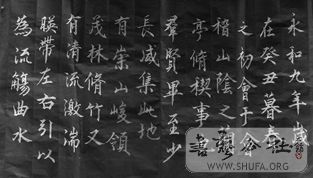 永和九年歲
在癸丑暮春
之初會于
稽山陰之
亭脩稧事
羣賢畢至少
長咸集此地
有崇山峻領
茂林脩竹又
有清流激湍
暎帶左右引以
為流觴曲水
書藝公社
WWW.SHUFA.ORG